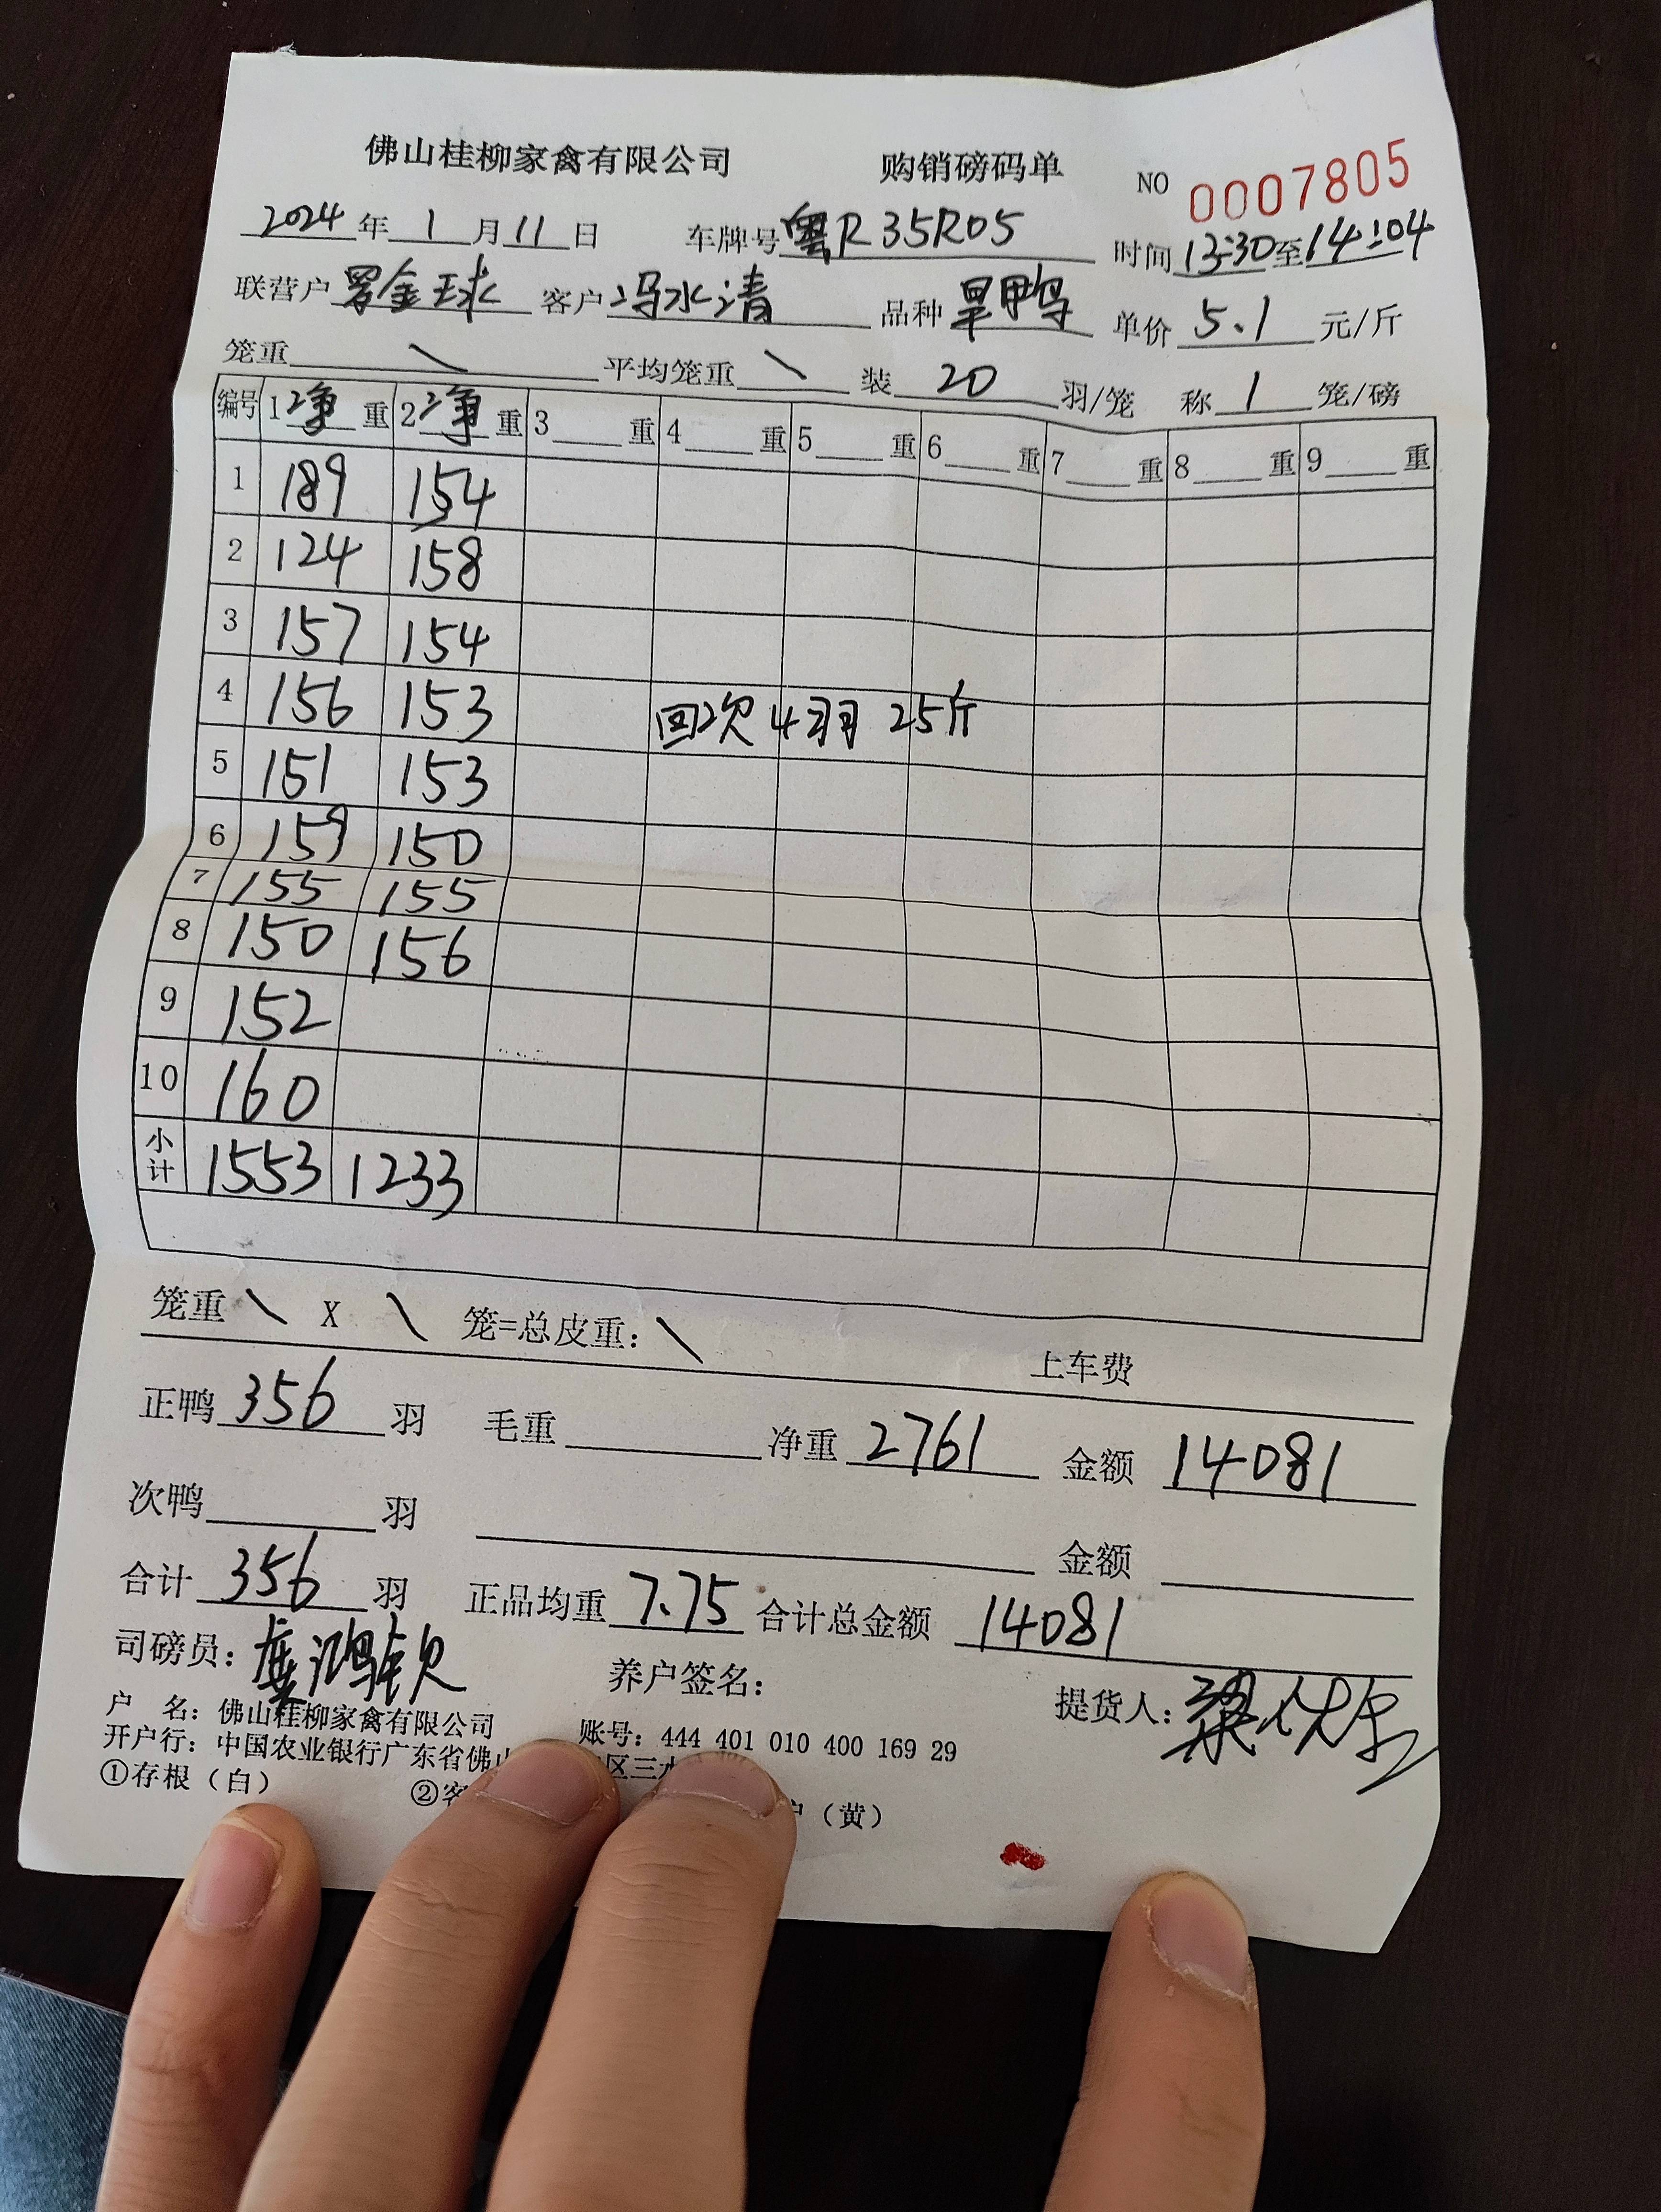 佛山桂柳家禽有限公司 购销磅码单 NO 0007805
2024年1月11日 车牌号粤R35R05 时间13:30至14:04
联营户罗金球 客户冯水清 品种旱鸭 单价5.1元/斤
笼重\ 平均笼重\ 装20羽/笼 称1笼/磅
编号 1净重 2净重 3重 4重 5重 6重 7重 8重 9重
1 189 154
2 124 158
3 157 154
4 156 153 回次4羽 25斤
5 151 153
6 159 150
7 155 155
8 150 156
9 152
10 160
小计 1553 1233
笼重\ X \ 笼=总皮重：\ 上车费
正鸭356羽 毛重 净重2761 金额14081
次鸭 羽 金额
合计356羽 正品均重7.75 合计总金额14081
司磅员： 养户签名： 提货人：
户 名：佛山桂柳家禽有限公司 账号：444 401 010 400 169 29
开户行：中国农业银行广东省佛山 区三水
①存根（白） ②客 户（黄）